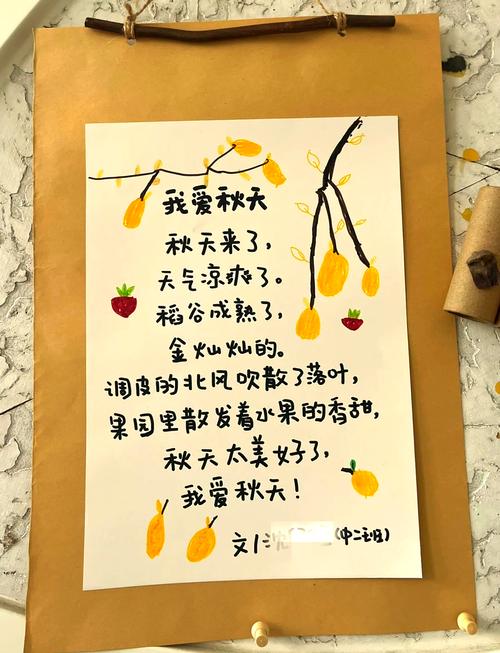 我爱秋天
秋天来了,
天气凉爽了。
稻谷成熟了,
金灿灿的。
调皮的北风吹散了落叶,
果园里散发着水果的香甜,
秋天太美好了,
我爱秋天!
文/ (中二班)